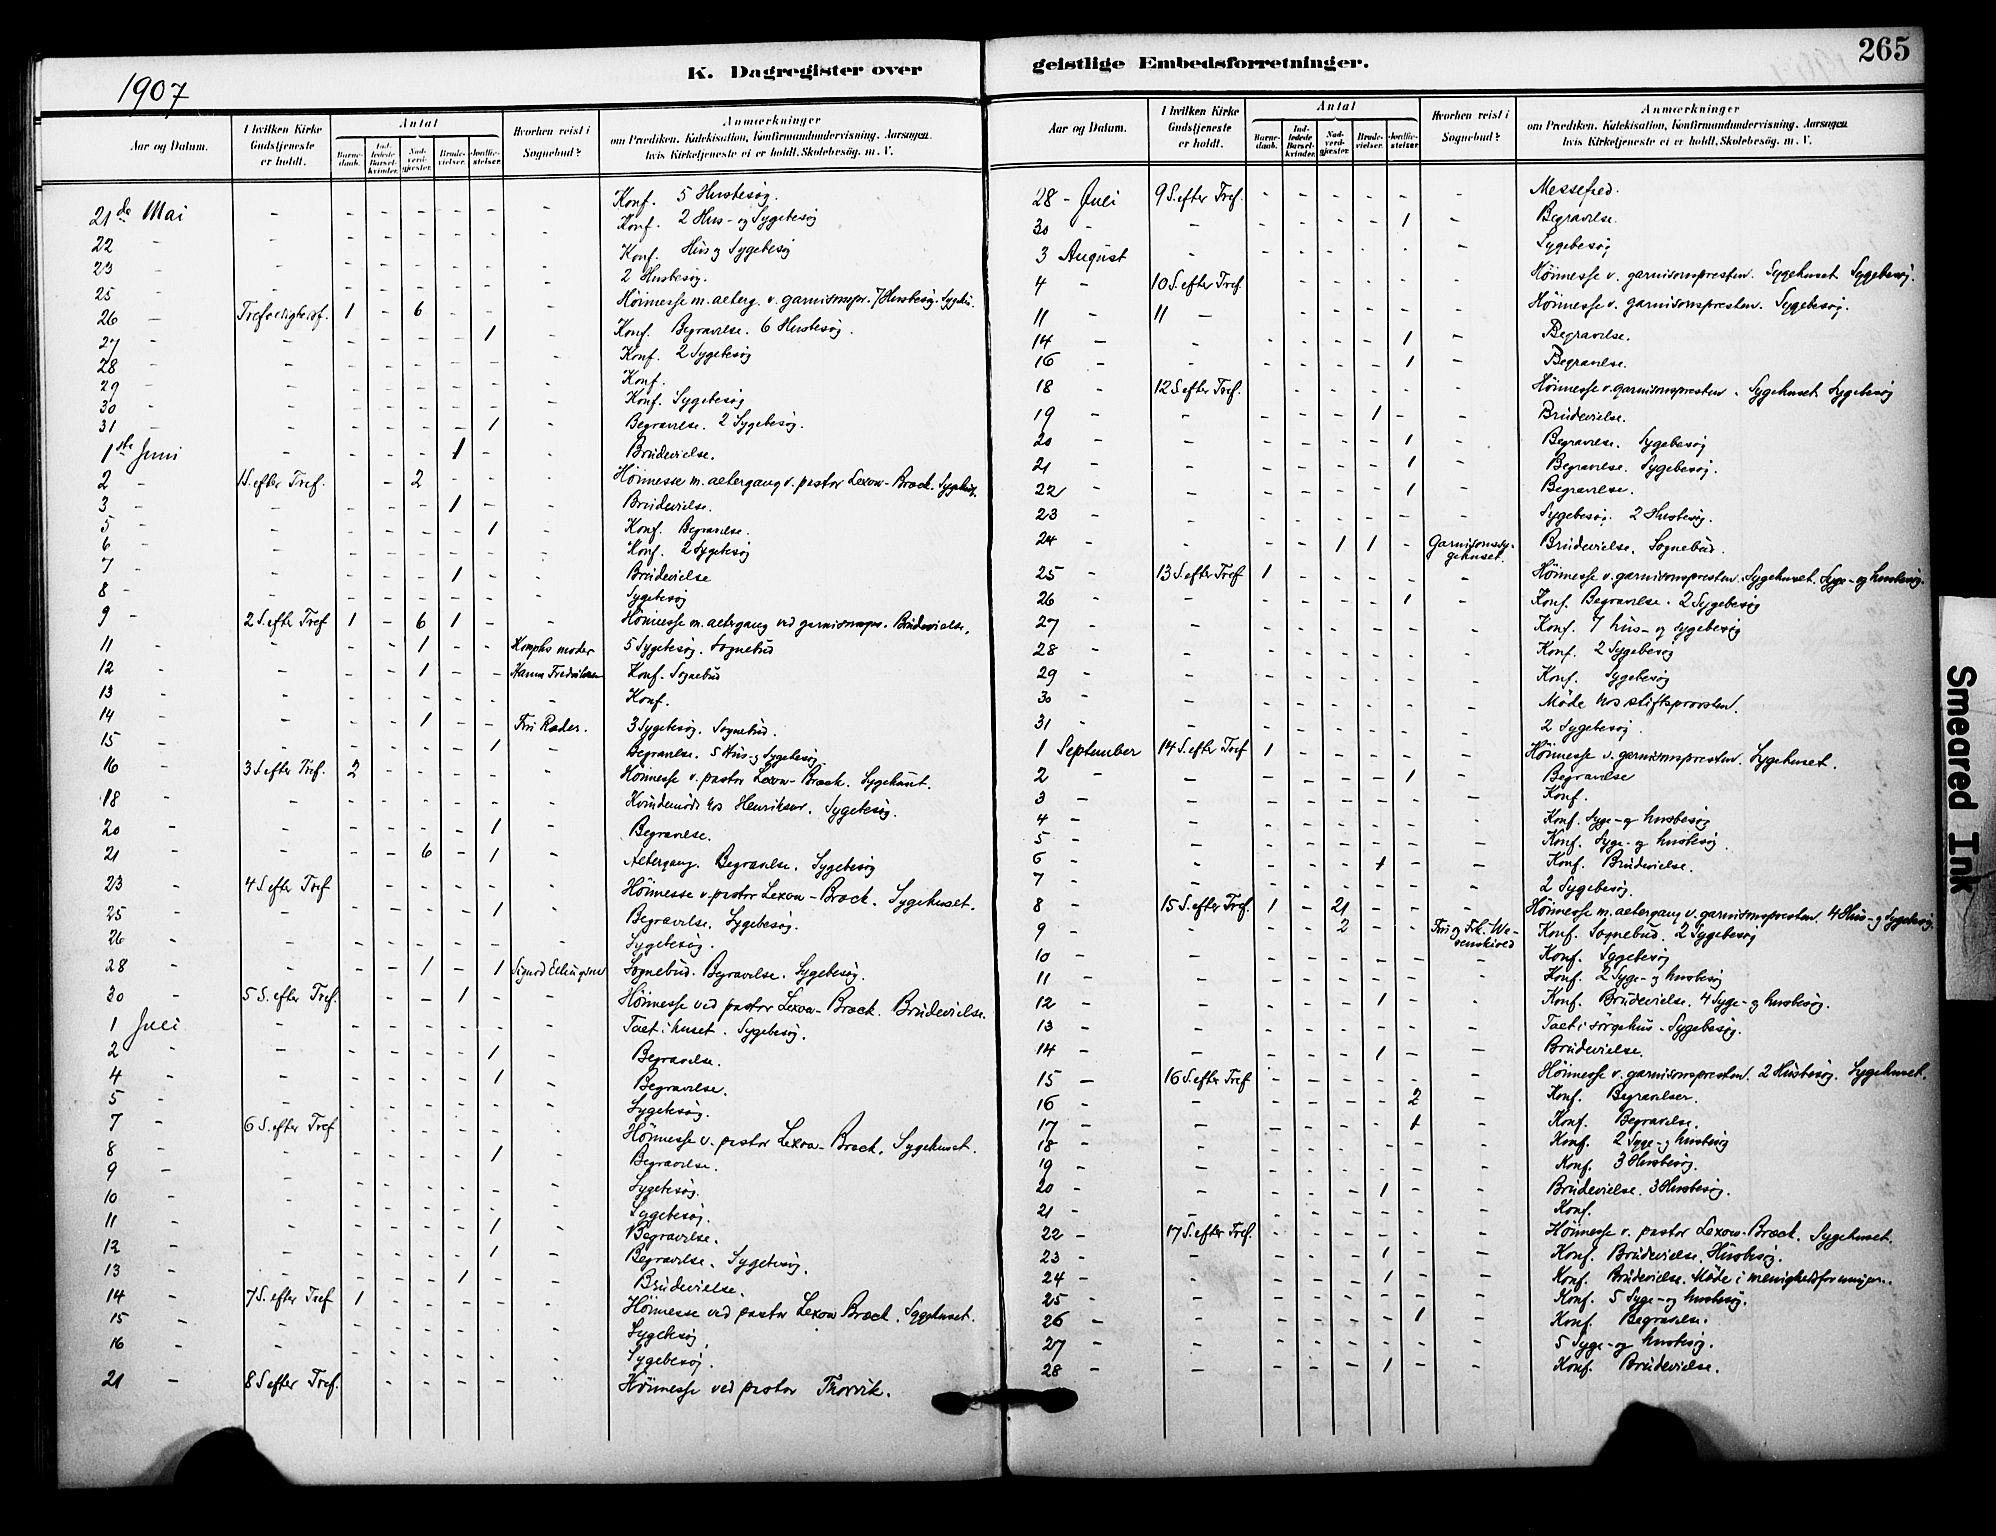 265
K. Dagregister over geistlige Embedsforretninger.
1907
Aar og Datum.
I hvilken Kirke Gudstjeneste er holdt.
Antal
Barnedaab.
Indledede Barselkvinder.
Nadverdgjæster.
Brudevielser.
Jordfæstelser.
Hvorhen reist i Sognebud?
Anmærkninger
om Prædiken, Katekisation, Konfirmandundervisning, Aarsagen hvis Kirketjeneste ei er holdt, Skolebesøg, m. V.
21de Mai - - - - - - - Konf. 5 Husbesøg.
22 - - - - - - - - Konf. 2 Hus- og Sygebesøg
23 - - - - - - - - Konf. Hus og Sygebesøg
25 - - - - - - - - 2 Husbesøg.
26 - Trefoldighedsf. 1 - 6 - - - Høimesse m. alterg. v. garnisonspr. 7 Husbesøg. Sygehu.
27 - - - - - - 1 - Konf. Begravelse. 6 Husbesøg.
28 - - - - - - - - Konf. 2 Sygebesøg
29 - - - - - - - - Konf.
30 - - - - - - - - Konf. Sygebesøg
31 - - - - - - 1 - Begravelse. 2 Sygebesøg.
1ste Juni - - - - 1 - - Brudevielse.
2 - 1 S. efter Tref. - 2 - - - Høimesse m. altergang v. pastor Lexow-Brock. Sygehus.
3 - - - - - 1 - - Brudevielse.
5 - - - - - - 1 - Konf. Begravelse.
6 - - - - - - - - Konf. 2 Sygebesøg
7 - - - - - 1 - - Brudevielse
8 - - - - - - - - Sygebesøg
9 - 2 S. efter Tref 1 - 6 1 - - Høimesse m. altergang ved garnisonspr. Brudevielse.
11 - - - - 1 - - moder 5 Sygebesøg. Sognebud
12 - - - - 1 - - Hanna Fredriksen Konf. Sognebud
13 - - - - - - - - Konf.
14 - - - - 1 - - Fru Rader. 3 Sygebesøg. Sognebud.
15 - - - - - - 1 - Begravelse. 5 Hus- og Sygebesøg.
16 - 3 S efter Tref. 2 - - - - - Høimesse v. pastor Lexow-Brock. Sygehuset.
18 - - - - - - - - Kvindemøde hos Henriksen. Sygebesøg.
20 - - - - - - 1 - Begravelse.
21 - - - - 6 - 1 - Altergang. Begravelse. Sygebesøg
23 - 4 S efter Tref - - - - - Høimesse v. pastor Lexow-Brock. Sygehuset.
25 - - - - - - 1 - Begravelse. Sygebesøg.
26 - - - - - - - - Sygebesøg.
28 - - - - 1 - 1 Sigurd Ellingsen Sognebud. Begravelse. Sygebesøg.
30 - 5 S. efter Tref. - - - 1 - - Høimesse ved pastor Lexow-Brock. Brudevielse.
1 Juli - - - - - - - Talt i huset. Sygebesøg.
2 - - - - - - 1 - Begravelse.
4 - - - - - - 1 - Begravelse.
5 - - - - - - - - Sygebesøg.
7 - 6 S. efter Tref - - - - - Høimesse v. pastor Lexow-Brock. Sygehuset.
8 - - - - - - 1 - Begravelse.
9 - - - - - - - - Sygebesøg.
10 - - - - - - - - Sygebesøg.
11 - - - - - - 1 - Begravelse.
12 - - - - - - 1 - Begravelse. Sygebesøg.
13 - - - - - 1 - - Brudevielse.
14 - 7 S. efter Tref 1 - - - - - Høimesse ved pastor Lexow Brock. Sygehuset.
15 - - - - - - - - Sygebesøg
16 - - - - - - - - Sygebesøg.
21 - 8 S efter Tref. - - - - - Høimesse ved pastor Thorvik.
Aar og Datum.
I hvilken Kirke Gudstjeneste er holdt.
Antal
Barnedaab.
Indledede Barselkvinder.
Nadverdgjæster.
Brudevielser.
Jordfæstelser.
Hvorhen reist i Sognebud?
Anmærkninger
om Prædiken, Katekisation, Konfirmandundervisning, Aarsagen hvis Kirketjeneste ei er holdt, Skolebesøg, m. V.
28 - Juli 9 S. efter Tref. - - - - - - Messefred.
30 - - - - - - 1 - Begravelse.
3 August - - - - - - - Sygebesøg
4 - 10 S. efter Tref - - - - - - Høimesse v. garnisonspresten. Sygehuset Sygebesøg.
11 - 11 - - - - - - - Høimesse v. garnisonspresten. Sygebesøg.
14 - - - - - - 1 - Begravelse.
16 - - - - - - 1 - Begravelse.
18 - 12 S. efter Tref. - - - - - - Høimesse v. garnisonspresten. Sygehuset Sygebesøg
19 - - - - - 1 - - Brudevielse.
20 - - - - - - 1 - Begravelse. Sygebesøg
21 - - - - - - 1 - Begravelse. Sygebesøg.
22 - - - - - - 1 - Begravelse.
23 - - - - - - - - Sygebesøg. 2 Husbesøg.
24 - - - - 1 1 - Garnisonssygehuset. Brudevielse. Sognebud.
25 - 13 S efter Tref 1 - - - - - Høimesse v. garnisonspresten. Sygehuset. Syge- og husbesøg.
26 - - - - - - 1 - Konf. Begravelse. 2 Sygebesøg
27 - - - - - - - - Konf. 7 hus- og sygebesøg
28 - - - - - - - - Konf. 2 Sygebesøg
29 - - - - - - - - Konf. Sygebesøg
30 - - - - - - - - Møde hos stiftsprovsten.
31 - - - - - - - - 2 Sygebesøg.
1 September 14 S. efter Tref 1 - - - - - Høimesse v. garnisonspresten. Sygehuset.
2 - - - - - - 1 - Begravelse
3 - - - - - - - - Konf.
4 - - - - - - - - Konf. Syge- og husbesøg
5 - - - - - - - - Konf. Syge- og husbesøg.
6 - - - - - 1 - - Konf. Brudevielse.
7 - - - - - - - - 2 Sygebesøg.
8 - 15 S. efter Tref. 1 - 21 - - - Høimesse m. altergang v. garnisonspresten. 4 Hus- og Sygebesøg.
9 - - - - 2 - - Fru og Frk. Wesenskiold Konf. Sognebud. 2 Sygebesøg
10 - - - - - - - - Konf. Sygebesøg
11 - - - - - - - - Konf. 2 Syge- og husbesøg
12 - - - - - 1 - - Konf. Brudevielse. 4 Syge- og husbesøg.
13 - - - - - - - - Talt i sørgehus. Sygebesøg.
14 - - - - - 1 - - Brudevielse.
15 - 16 S. efter Tref - - - - - - Høimesse v. garnisonspresten. 2 Husbesøg. Sygehuset.
16 - - - - - - 2 - Konf. Begravelser.
17 - - - - - - 1 - Konf. Begravelse.
18 - - - - - - - - Konf. 2 Syge- og husbesøg
19 - - - - - - - - Konf. 3 Husbesøg.
20 - - - - - 1 - - Brudevielse. 3 Husbesøg.
21 - - - - - - - - Konf.
22 - 17 S. efter Tref. - - - - - - Høimesse v. pastor Lexow-Brock. Sygehuset.
23 - - - - - 1 - - Konf. Brudevielse. Husbesøg.
24 - - - - - 1 - - Konf. Brudevielse. Møde i menighedsforeningen.
25 - - - - - - - - Konf. 5 Syge- og husbesøg.
26 - - - - - - 1 - Konf. Begravelse.
27 - - - - - - - - 5 Syge- og husbesøg.
28 - - - - - 1 - - Konf. Brudevielse.
Smeared Ink